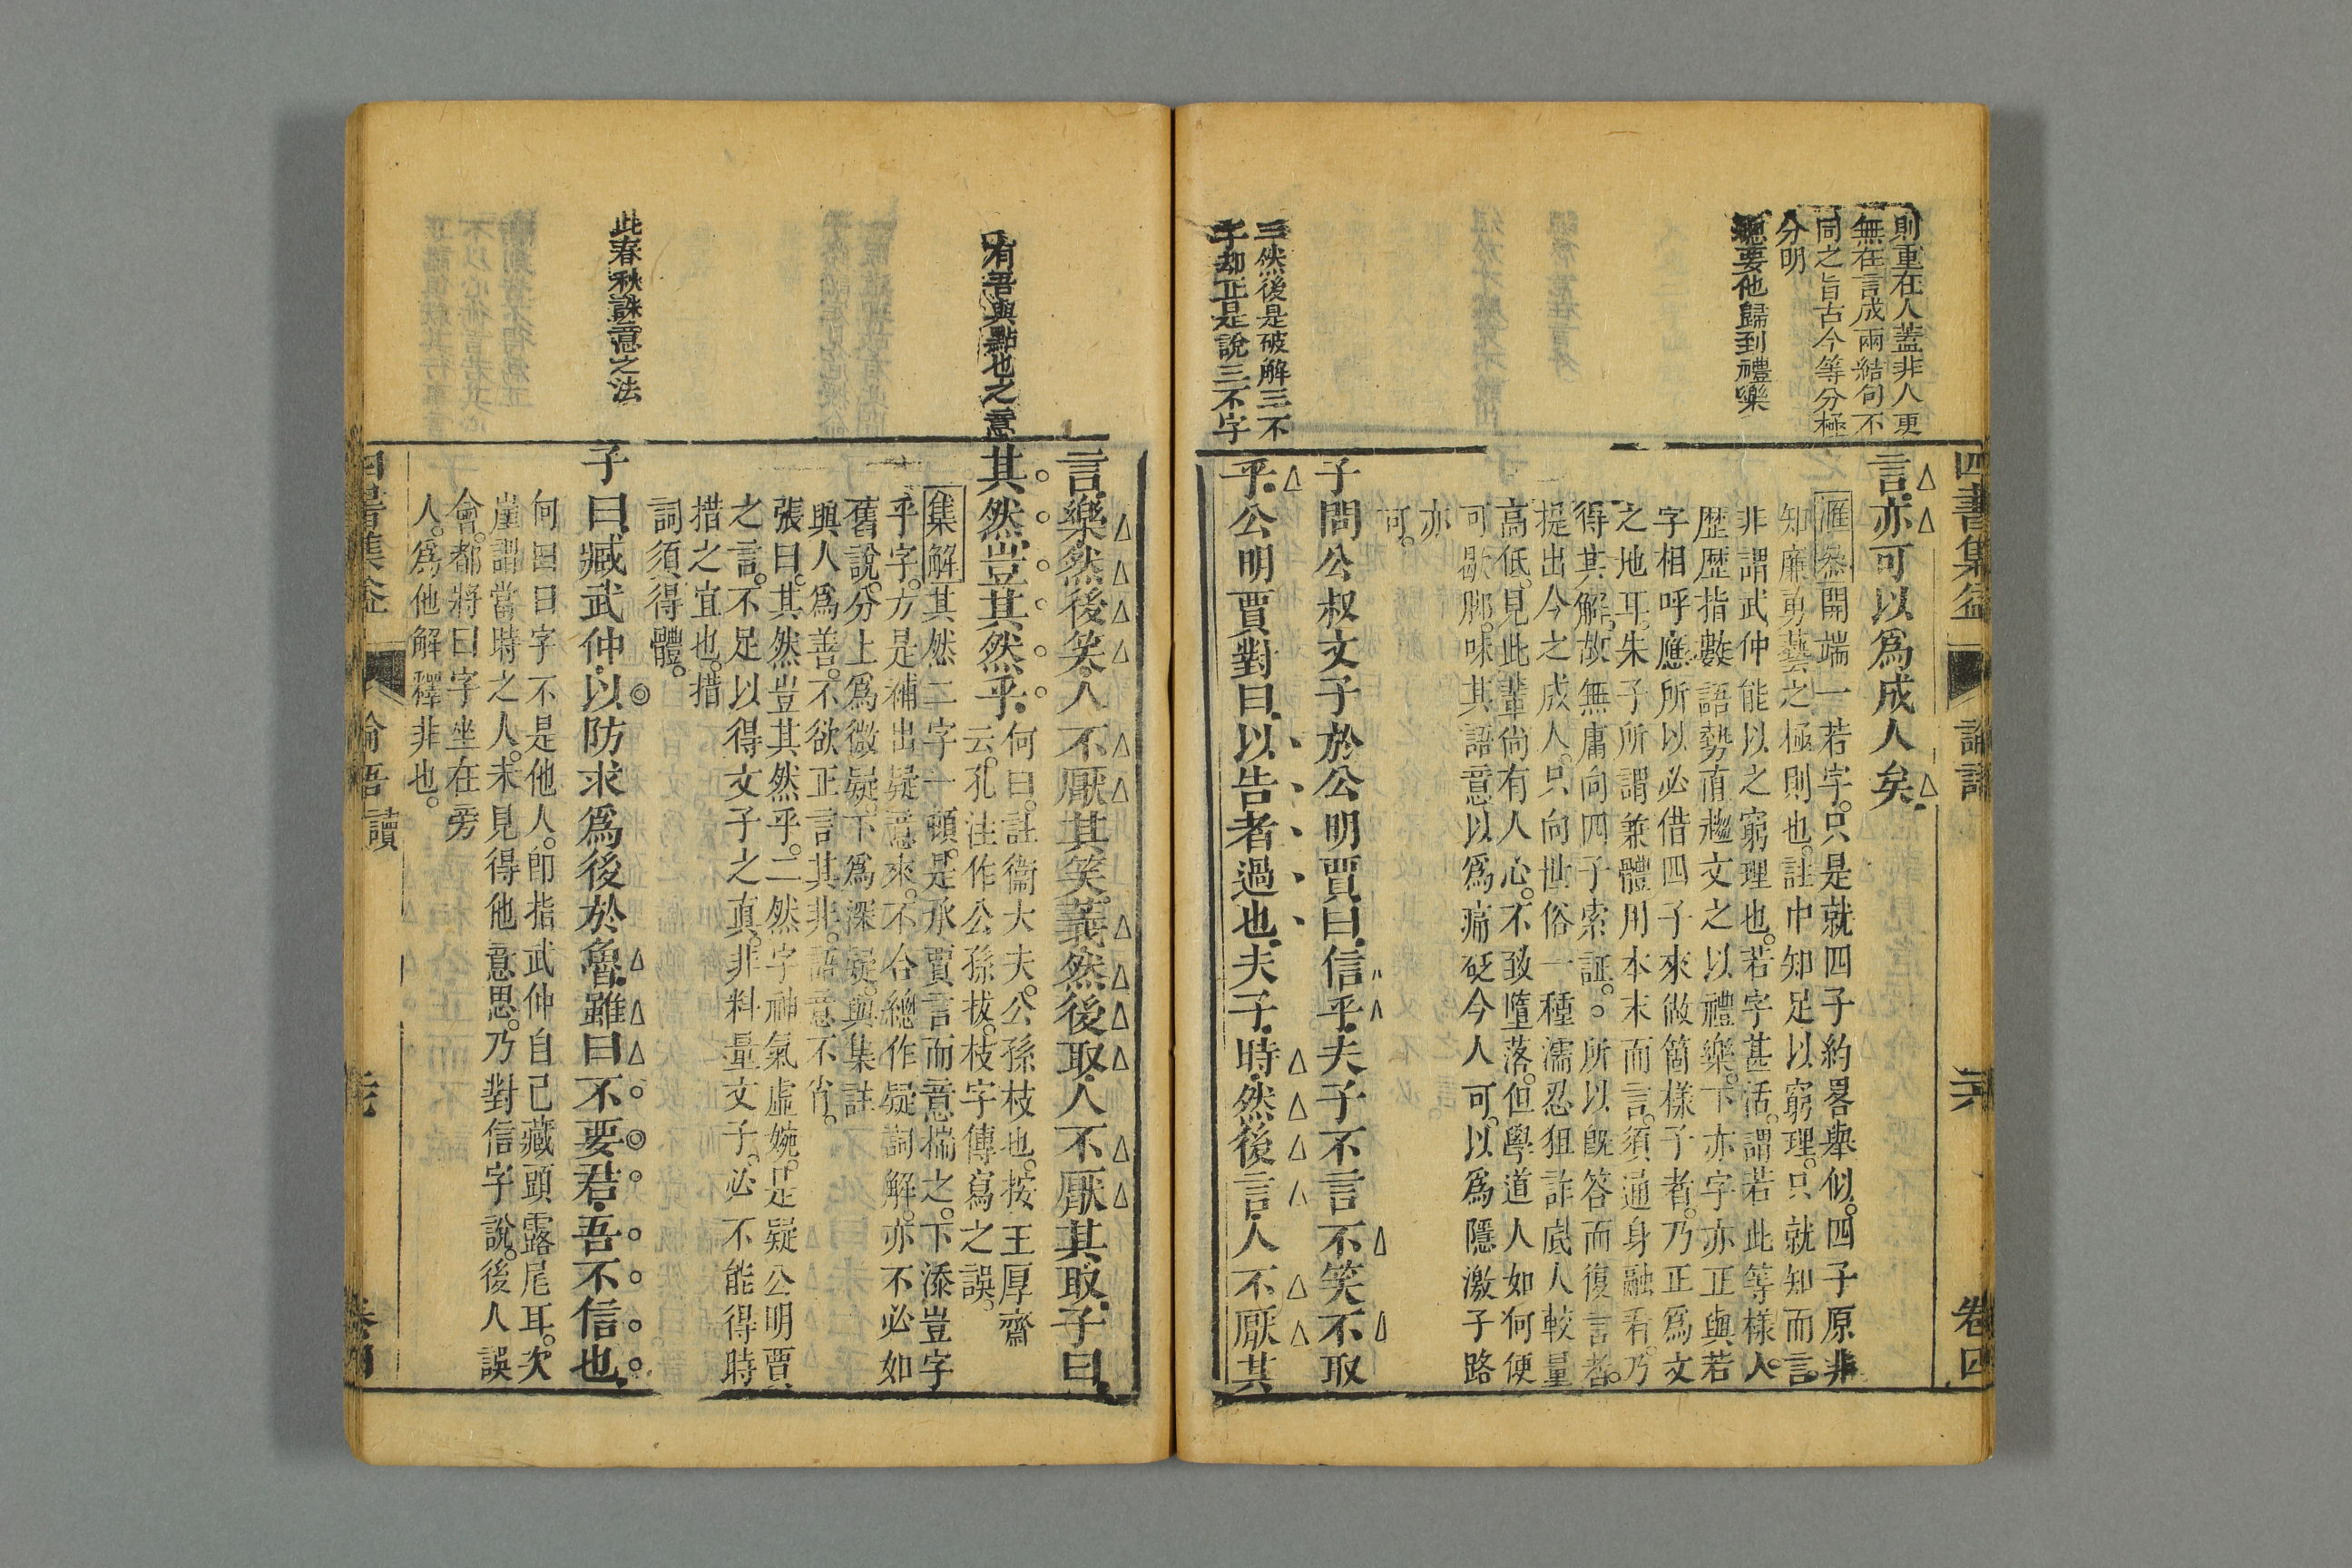 則重在人蓋非人更
無在言成兩結句不
同之旨古今等分極
分明
聽要他歸到禮樂
三然後是破解三不
字却正是說三不字
四書集益
論語
卷四
言亦可以爲成人矣
匯叅開端一若字。只是就四子約畧舉似。四子原非
知廉勇藝之極則也。註中知足以窮理。只就知而言。
非謂武仲能以之窮理也。若字甚活。謂若此等樣人。
歴歴指數語勢直趨文之以禮樂。下亦字亦正與若
字相呼應所以必借四子來做箇樣子者。乃正爲文
之地耳。朱子所謂兼體用本末而言。須通身融看。乃
得其解。故無庸向四子索証。○所以旣答而復言者。
提出今之成人。只向世俗一種濡忍狙詐底人較量
高低。見此輩尙有人心。不致墮落。但學道人如何便
可歇脚。味其語意以爲痛砭今人可。以爲隱激子路
亦
可。
子問公叔文子於公明賈曰信乎夫子不言不笑不取
乎公明賈對曰以告者過也夫子時然後言人不厭其
有吾與點也之意
此春秋誅意之法
言樂然後笑人不厭其笑義然後取人不厭其取子曰
其然豈其然乎
何曰。註衞大夫。公孫枝也。按王厚齋
云。孔注作公孫拔。枝字傳寫之誤。
集解其然二字一頓。是承賈言而意揣之。下添豈字
乎字。方是補出疑意來。不合總作疑詞解。亦不必如
舊說。分上爲微疑。下爲深疑。與集註
與人爲善。不欲正言其非。語意不肖。
張曰。其然豈其然乎。二然字神氣虛婉。是疑公明賈
之言。不足以得文子之眞。非料量文子。必不能得時
措之宜也。措
詞須得體。
子曰臧武仲以防求爲後於魯雖曰不要君吾不信也
何曰曰字不是他人。卽指武仲自己藏頭露尾耳。次
崖謂當時之人。未見得他意思。乃對信字說。後人誤
會。都將曰字坐在旁
人。爲他解釋非也。
論語
讀